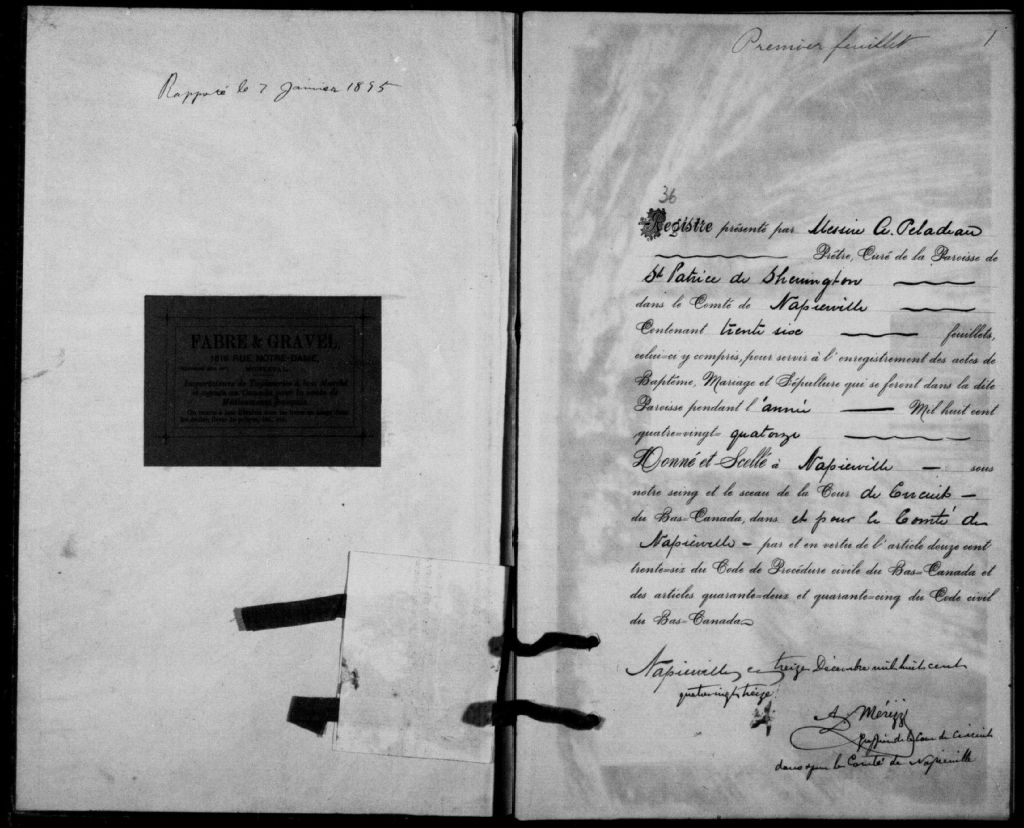 Rapporté le 7 Janvier 1895
FABRE & GRAVEL
1616 RUE NOTRE-DAME,
MONTREAL.
Importateurs de Tapisseries à bon Marché
et agents au Canada pour la vente de
Premier feuillet 1
36
Registre présenté par Messire A. Peladeau
Prêtre, Curé de la Paroisse de
St Patrice de Sherrington
dans le Comté de Napierville
Contenant trente six feuillets,
celui-ci y compris, pour servir à l'enregistrement des actes de
Baptême, Mariage et Sépulture qui se feront dans la dite
Paroisse pendant l'année Mil huit cent
quatre=vingt= quatorze
Donné et Scellé à Napierville – sous
notre seing et le sceau de la Cour de Circuit –
du Bas-Canada, dans et pour le Comté de
Napierville – par et en vertu de l'article douze cent
trente=six du Code de Procédure civile du Bas=Canada et
des articles quarante=deux et quarante=cinq du Code civil
du Bas-Canada
Napierville ce treize Décembre mil huit cent
quatrevingt treize
A. Mérizzi
Greffier de la Cour de Circuit
dans & pour le Comté de Napierville